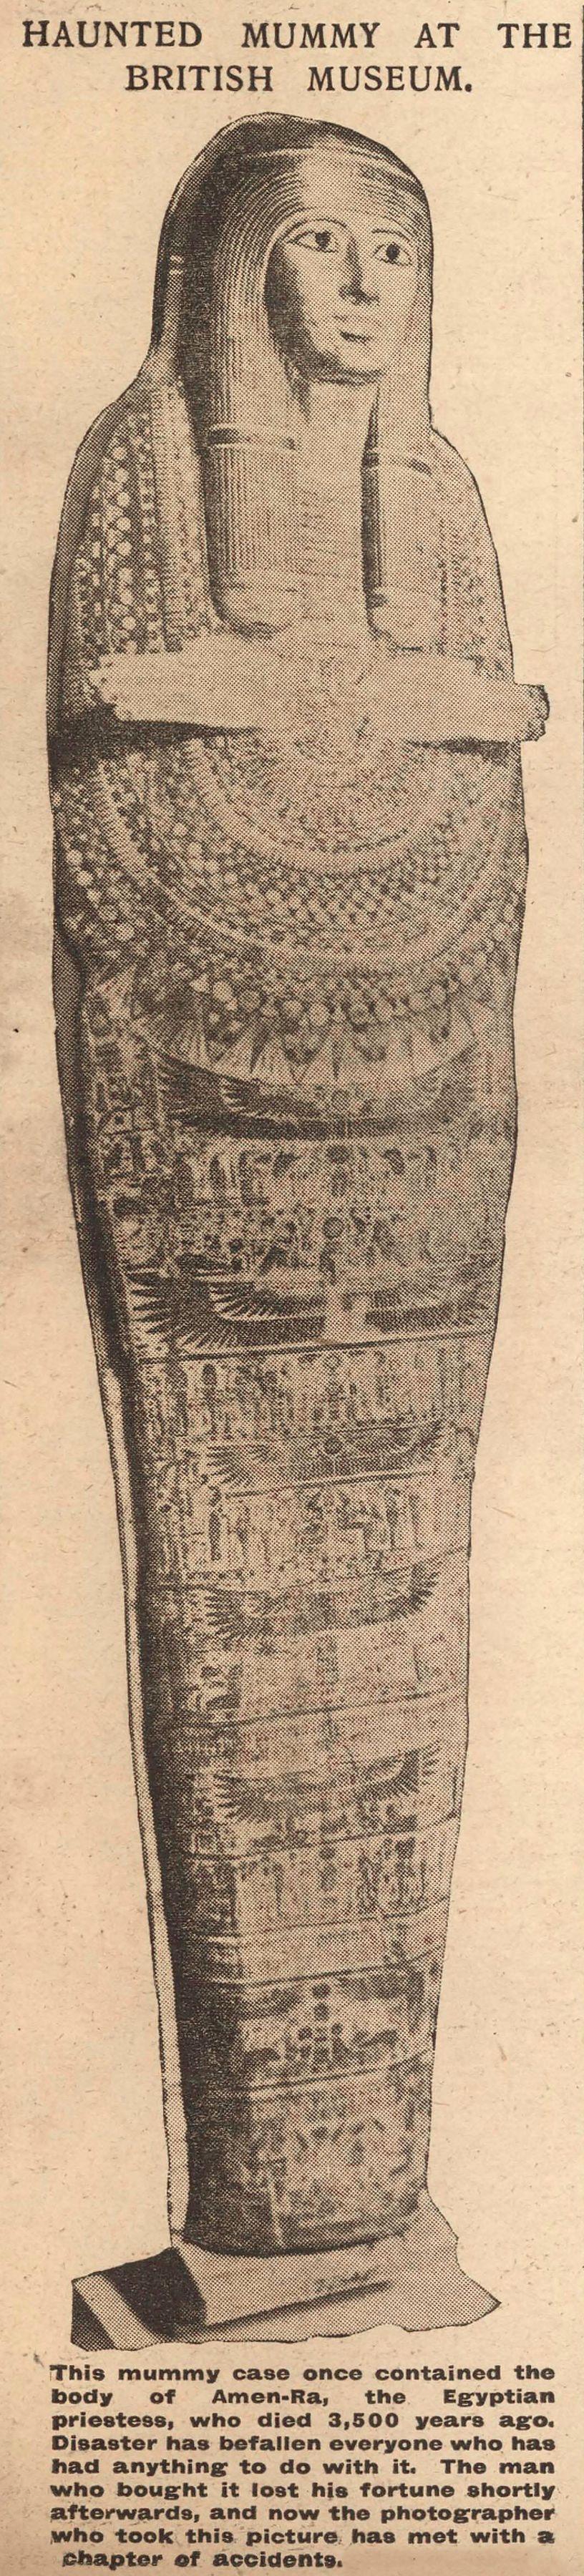 HAUNTED MUMMY AT THE
BRITISH MUSEUM.
This mummy case once contained the
body of Amen-Ra, the Egyptian
priestess, who died 3,500 years ago.
Disaster has befallen everyone who has
had anything to do with it. The man
who bought it lost his fortune shortly
afterwards, and now the photographer
who took this picture has met with a
chapter of accidents.